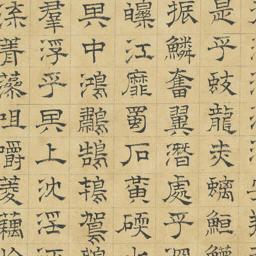 是乎蛟龍赤螭
振鱗奮翼潛處乎深
皪江靡蜀石黃碝水
其中鴻鷫鵠鴇鴐
羣浮乎其上沈淫
菁藻咀嚼菱藕